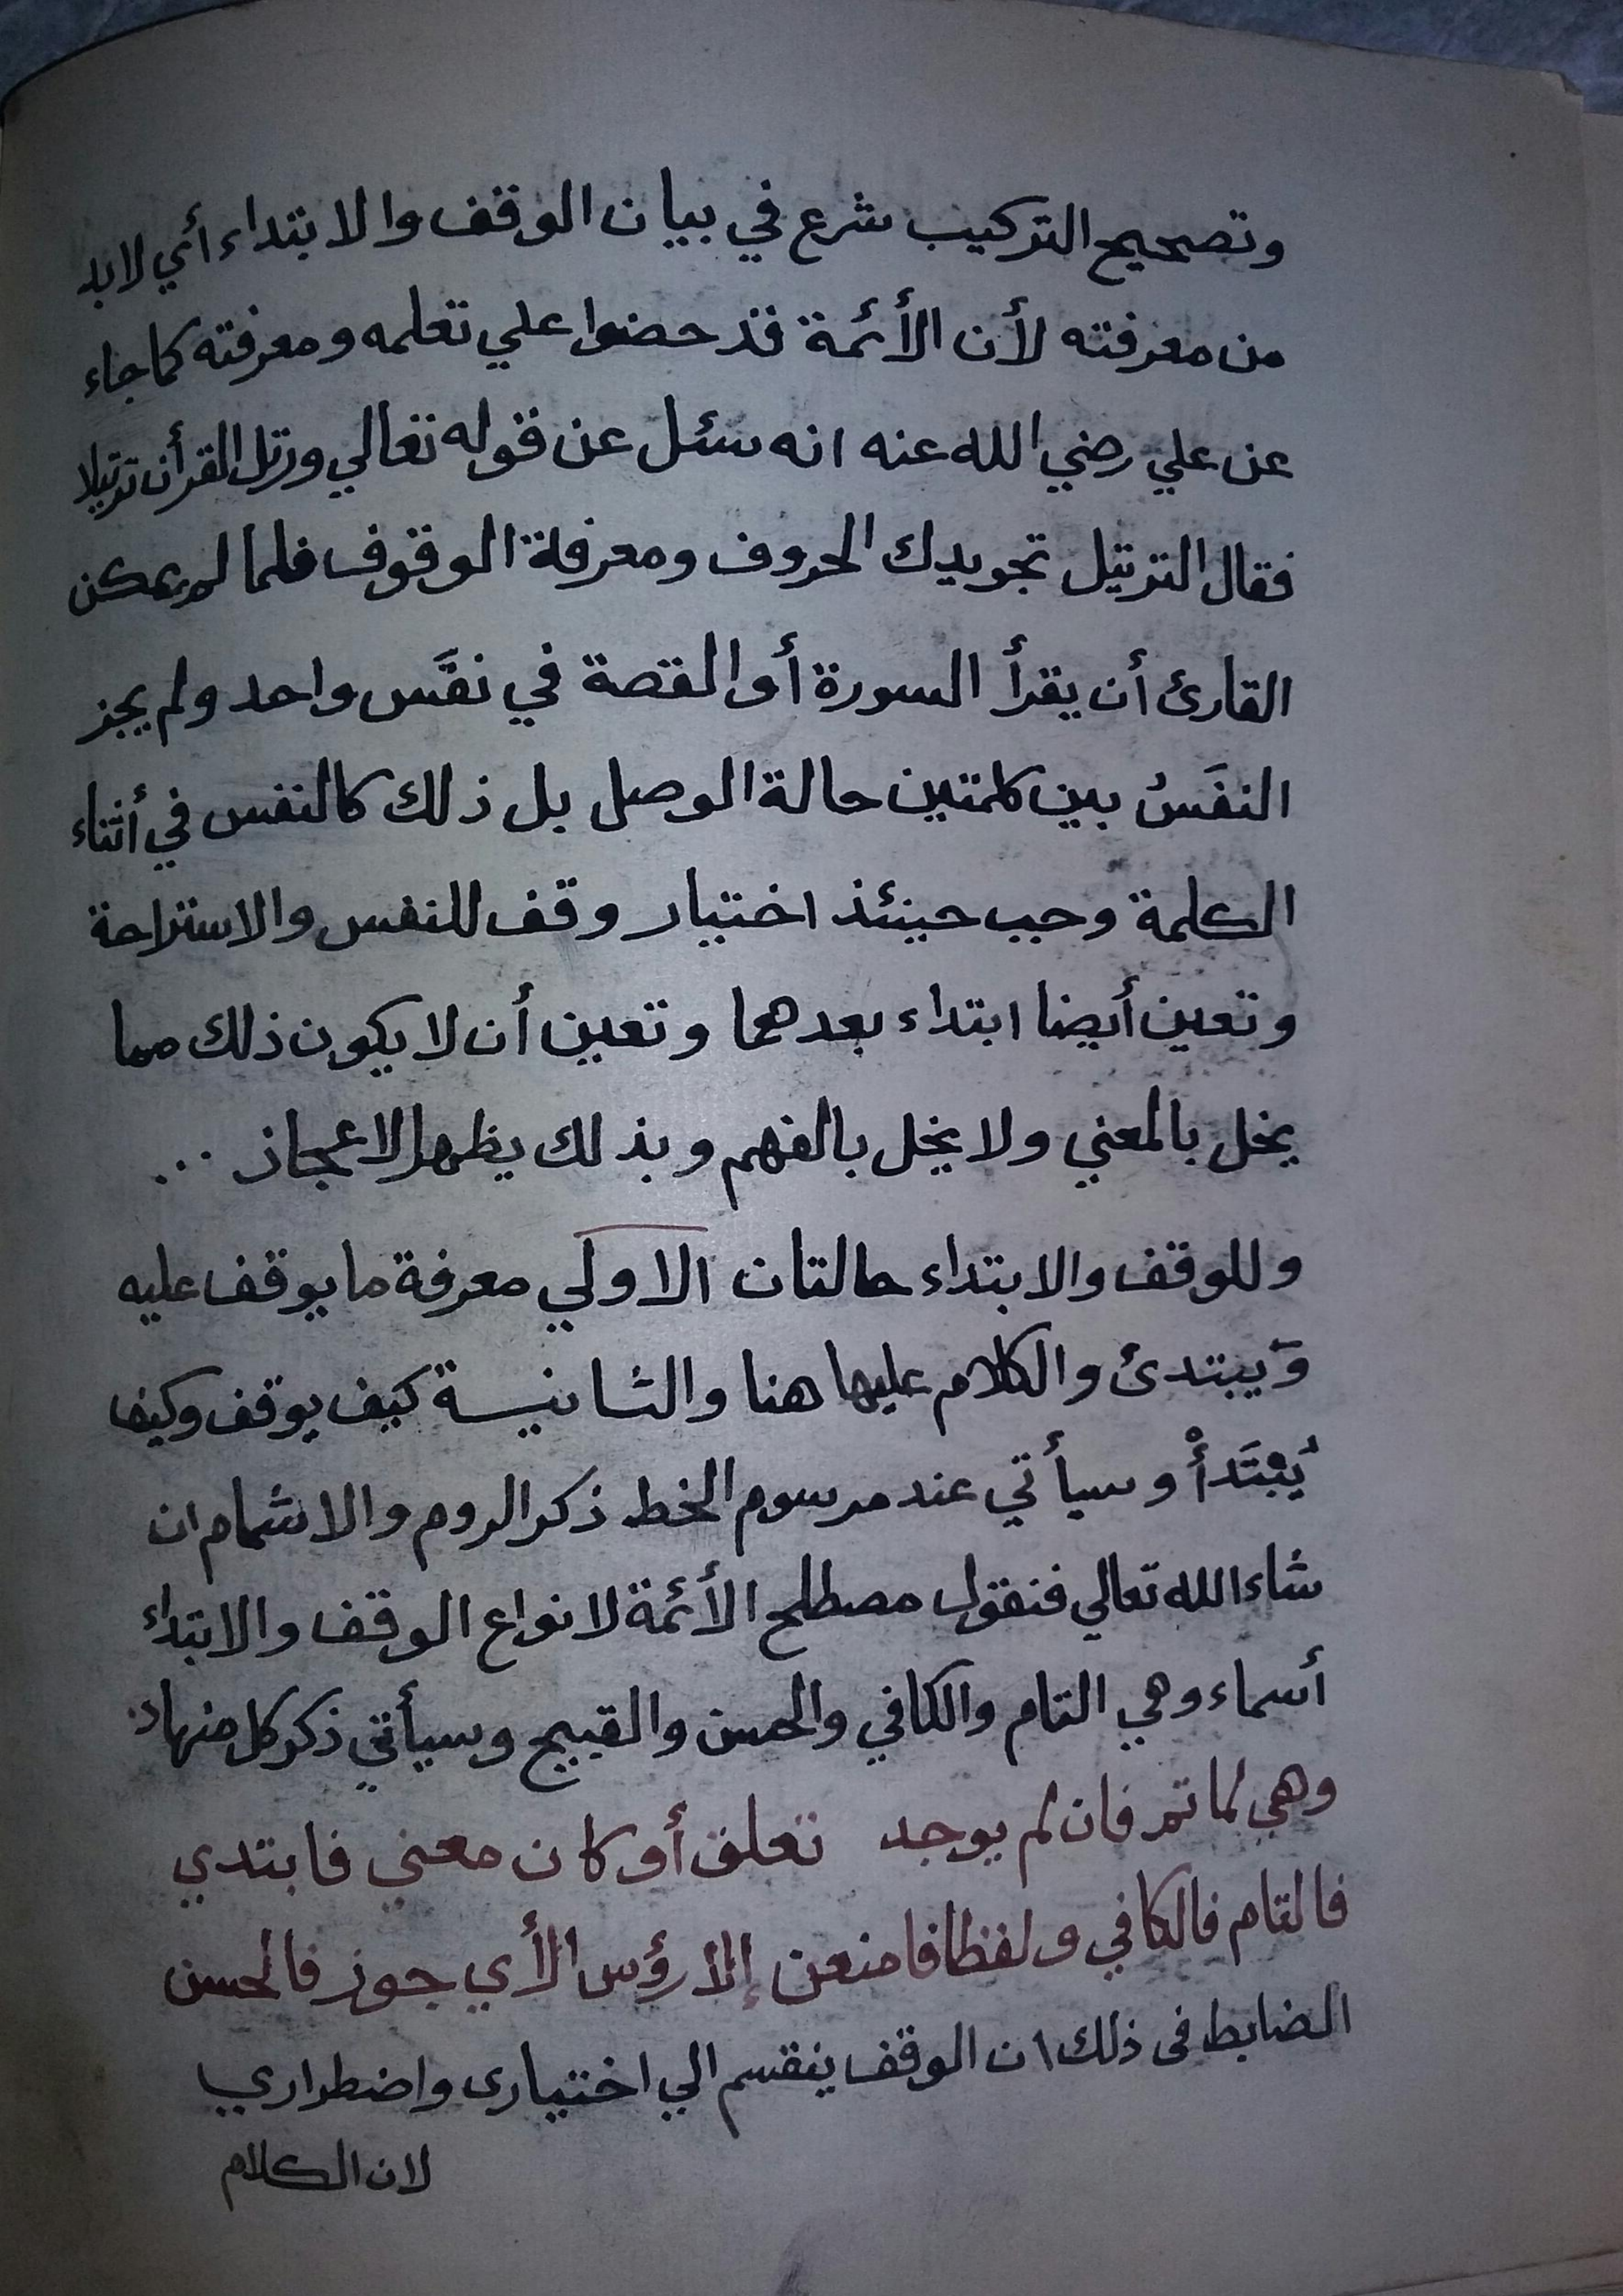 وتصحيح التركيب شرع في بيان الوقف والابتداء أي لابد
من معرفته لأن الأئمة قد حضوا علي تعلمه ومعرفته كما جاء
عن علي رضي الله عنه انه سئل عن قوله تعالي ورتل القرأن ترتيلا
فقال الترتيل تجويدك الحروف ومعرفة الوقوف فلما لم يمكن
القارئ أن يقرأ السورة أو القصة في نفَس واحد ولم يجز
النفَسُ بين كلمتين حالة الوصل بل ذلك كالنفس في أثناء
الكلمة وجب حينئذ اختيار وقف للنفس والاستراحة
وتعين أيضا ابتداء بعدهما وتعين أن لا يكون ذلك مما
يخل بالمعني ولا يخل بالفهم وبذلك يظهر الاعجاز ...
وللوقف والابتداء حالتان الاولي معرفة ما يوقف عليه
وَيبتدئ والكلام عليها هنا والثانيسة كيف يوقف وكيف
يُبْتَدأْ وسيأتي عند مرسوم الخط ذكر الروم والاشمام ان
شاء الله تعالي فنقول مصطلح الأئمة لانواع الوقف والابتداء
أسماء وهي التام والكافي والحسن والقبيح وسيأتي ذكر كل منها
وهي لما تم فان لم يوجد تعلق أو كان معني فابتدي
فالتام فالكافي ولفظا فامنعن إلا رؤس الأي جوز فالحسن
الضابط فى ذلك ان الوقف ينقسم الي اختيارى واضطراري
لان الكلام